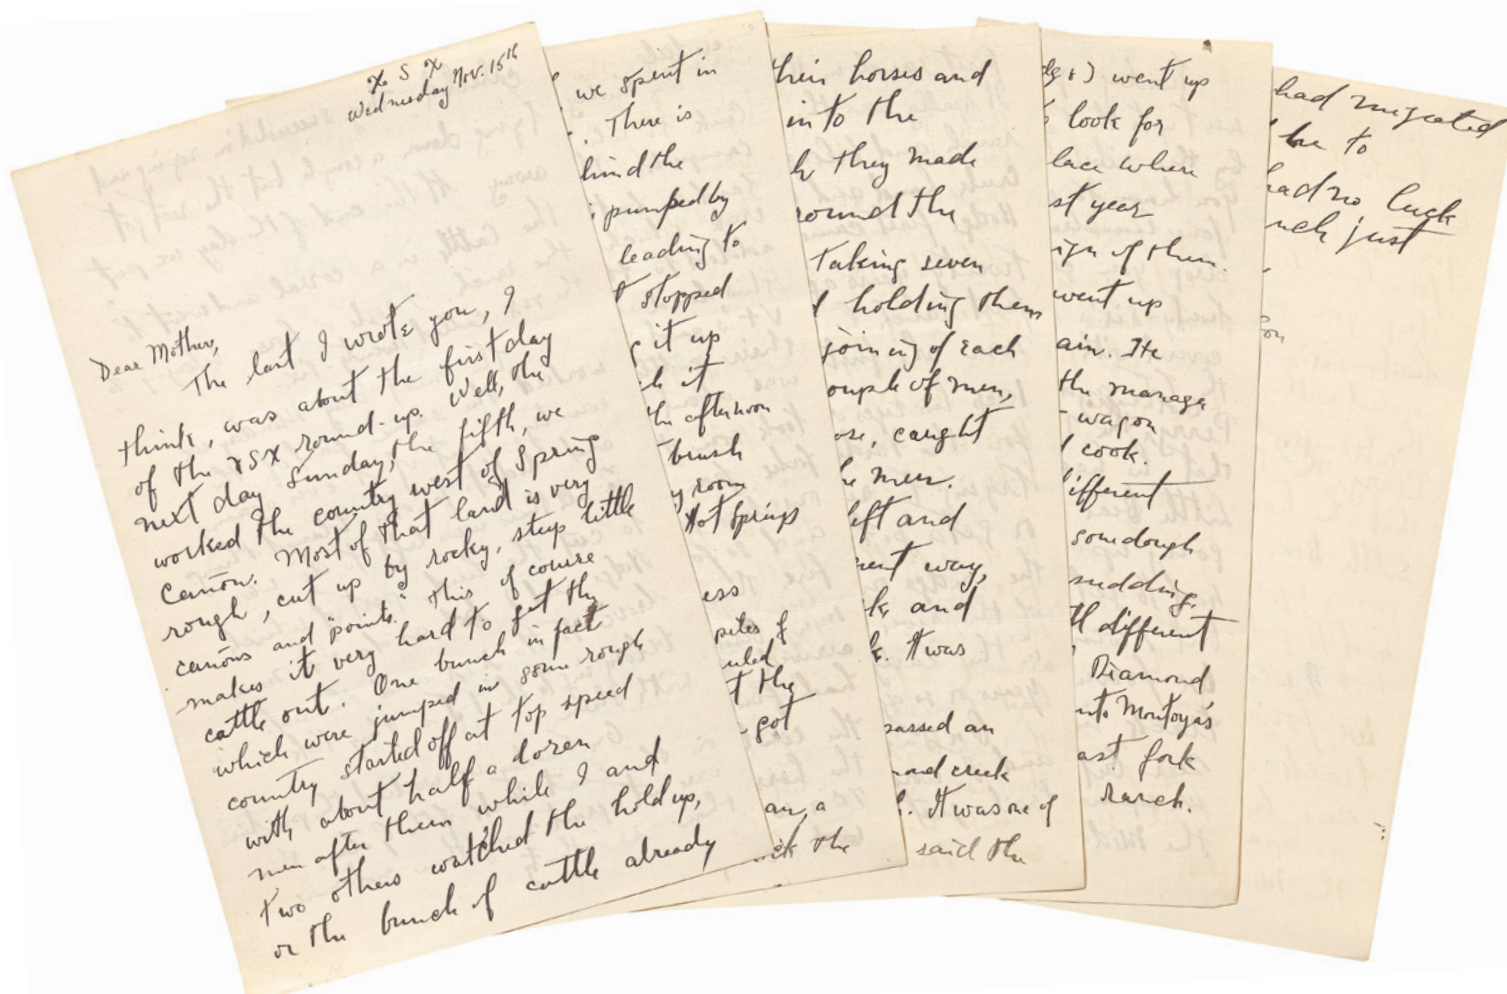 X S X
Wednesday Nov. 15th
Dear Mother,
The last I wrote you, I
think, was about the first day
of the XSX round-up. Well, the
next day Sunday, the fifth, we
worked the country west of Spring
Canõn. Most of that land is very
rough, cut up by rocky, steep little
canõns and "points." This of course
makes it very hard to get the
cattle out. One bunch in fact
which were jumped in some rough
country started off at top speed
with about half a dozen
men after them while I and
two others watched the hold up,
or the bunch of cattle already
we spent in
There is
hind the
pumped by
leading to
stopped
it up
it
the afternoon
brush
room
Hot Springs
ess
piles of
t the
got
an, a
ck the
their horses and
into the
they made
round the
Taking seven
holding them
joining of each
ouple of men,
ose, caught
men.
left and
rent way,
and
It was
passed an
mond creek
It was one of
said the
went up
look for
lace where
st year
ign of them.
went up
ain. He
the manage
wagon
cook.
different
somedough
pudding,
different
Diamond
into Montoya's
ast fork
ranch.
had migrated
be to
had no luck
nch just
on